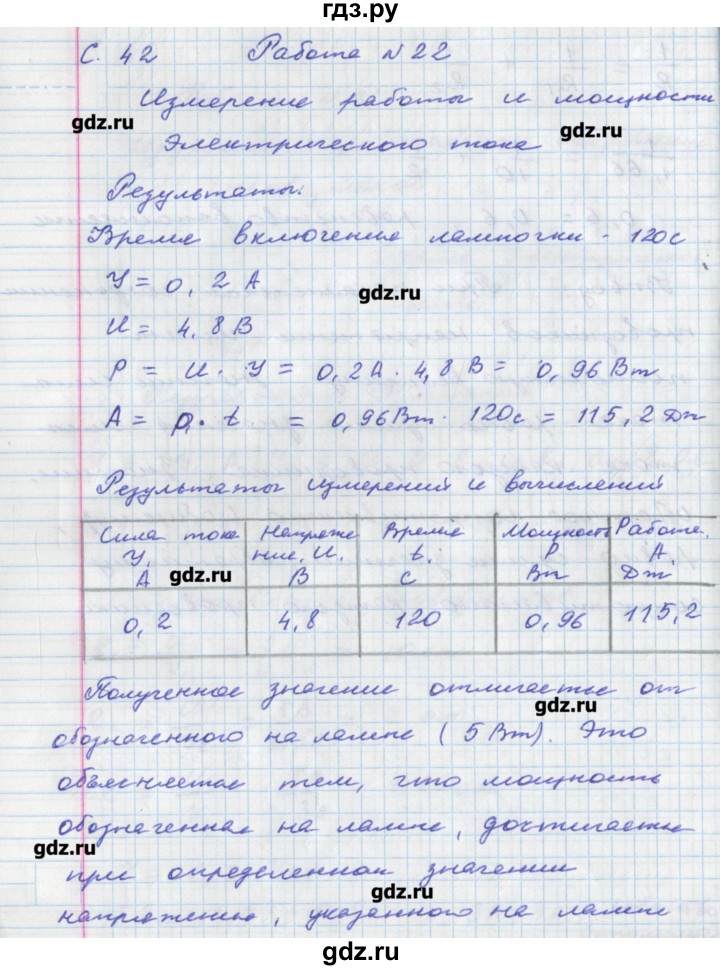 гдз.ру
С. 42 Работа № 22
Измерение работы и мощности
gdz.ru
gdz.ru
Электрического тока
Результаты:
Время включения лампочки - 120с
У = 0,2 А
gdz.ru
U = 4,8 В
P = U · У = 0,2А · 4,8 В = 0,96 Вт
A = P · t = 0,96Вт · 120с = 115,2 Дж
Результаты измерений и вычислений
Сила тока У, А
Напряжение, U. В
Время t. с
Мощность P Вт
Работа. А. Дж
gdz.ru
0,2
4,8
120
0,96
115,2
Полученное значение отличается от
gdz.ru
обозначенного на лампе (5 Вт). Это
объясняется тем, что мощность
обозначенная на лампе, достигается
gdz.ru
при определенном значении
gdz.ru
напряжения, указанного на лампе
gdz.ru